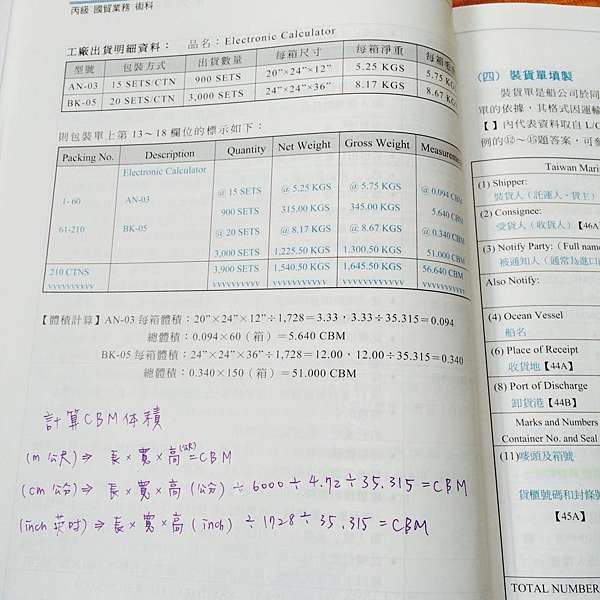 丙級 國貿業務 術科
工廠出貨明細資料： 品名：Electronic Calculator
型號 包裝方式 出貨數量 每箱尺寸 每箱淨重 每箱毛
AN-03 15 SETS/CTN 900 SETS 20”×24”×12” 5.25 KGS 5.75 K
BK-05 20 SETS/CTN 3,000 SETS 24”×24”×36” 8.17 KGS 8.67 K
則包裝單上第 13～18 欄位的標示如下：
Packing No. Description Quantity Net Weight Gross Weight Measurement
Electronic Calculator
@ 15 SETS @ 5.25 KGS @ 5.75 KGS @ 0.094 CBM
1- 60 AN-03
900 SETS 315.00 KGS 345.00 KGS 5.640 CBM
61-210 BK-05 @ 20 SETS @ 8.17 KGS @ 8.67 KGS @ 0.340 CBM
3,000 SETS 1,225.50 KGS 1,300.50 KGS 51.000 CBM
210 CTNS 3,900 SETS 1,540.50 KGS 1,645.50 KGS 56.640 CBM
vvvvvvvvvv vvvvvvvvvv vvvvvvvvvv vvvvvvvvvv vvvvvvvvvv
【體積計算】AN-03 每箱體積：20”×24”×12”÷1,728＝3.33，3.33÷35.315＝0.094
總體積：0.094×60（箱）＝5.640 CBM
BK-05 每箱體積：24”×24”×36”÷1,728＝12.00，12.00÷35.315＝0.340
總體積：0.340×150（箱）＝51.000 CBM
計算CBM体積
(m 公尺)⇒ 長×寬×高(公尺)=CBM
(cm 公分)⇒ 長×寬×高(公分)÷6000÷4.72÷35.315=CBM
(inch 英吋)⇒長×寬×高(inch)÷1728÷35.315=CBM
(四) 裝貨單填製
裝貨單是船公司於同
單的依據，其格式因運輸
【 】內代表資料取自 L/C
例的⑫～⑮題答案，可參
Taiwan Mari
(1) Shipper:
裝貨人（託運人、貨主）
(2) Consignee:
受貨人（收貨人）【46A
(3) Notify Party: (Full name
被通知人（通常為進口
Also Notify:
(4) Ocean Vessel
船名
(6) Place of Receipt
收貨地【44A】
(8) Port of Discharge
卸貨港【44B】
Marks and Numbers
Container No. and Seal
(11)嘜頭及箱號
貨櫃號碼和封條號
【45A】
TOTAL NUMBER